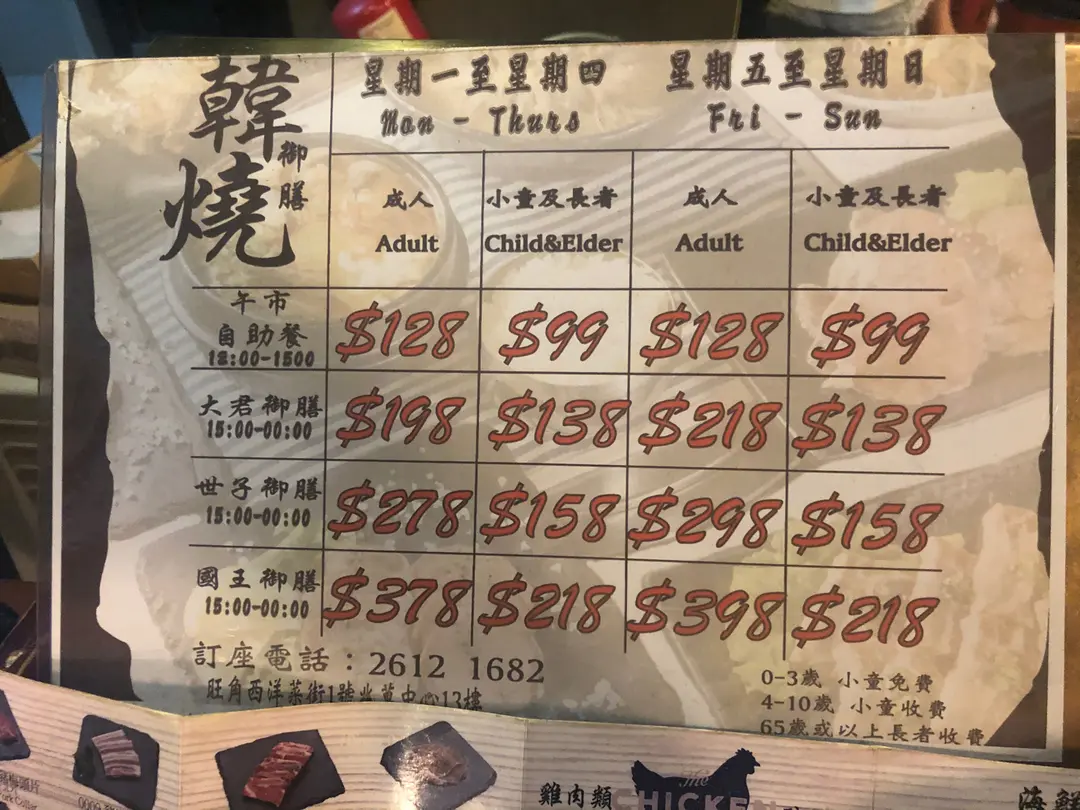 韓燒
御膳
星期一至星期四
Mon - Thurs
星期五至星期日
Fri - Sun
成人
Adult
小童及長者
Child&Elder
成人
Adult
小童及長者
Child&Elder
午市
自助餐
12:00-1500
$128 $99 $128 $99
大君御膳
15:00-00:00
$198 $138 $218 $138
世子御膳
15:00-00:00
$278 $158 $298 $158
國王御膳
15:00-00:00
$378 $218 $398 $218
訂座電話：2612 1682
旺角西洋菜街1號兆萬中心13樓
0-3歲 小童免費
4-10歲 小童收費
65歲或以上長者收費
雞肉類
The
CHICKEN
海鮮